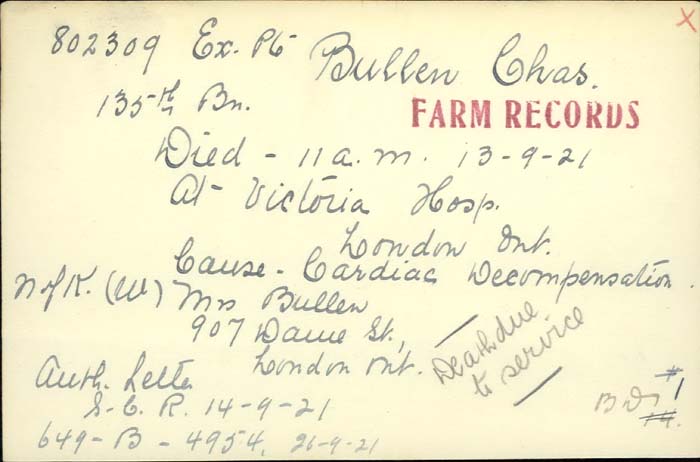 802309 Ex. Pt Bullen Chas.
135th Bn.
FARM RECORDS
Died - 11 a.m. 13-9-21
At Victoria Hosp.
London Ont.
Cause - Cardiac Decompensation.
N of K. (W) Mrs Bullen
907 Dame St.,
London Ont.
Death due
to service
Auth. Letter
S. C. R. 14-9-21
649-B-4954, 26-9-21
#1
B D
14.
X